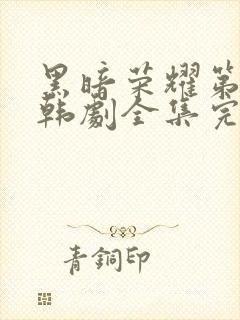 黑暗荣耀第
韩剧全集完
青銅印